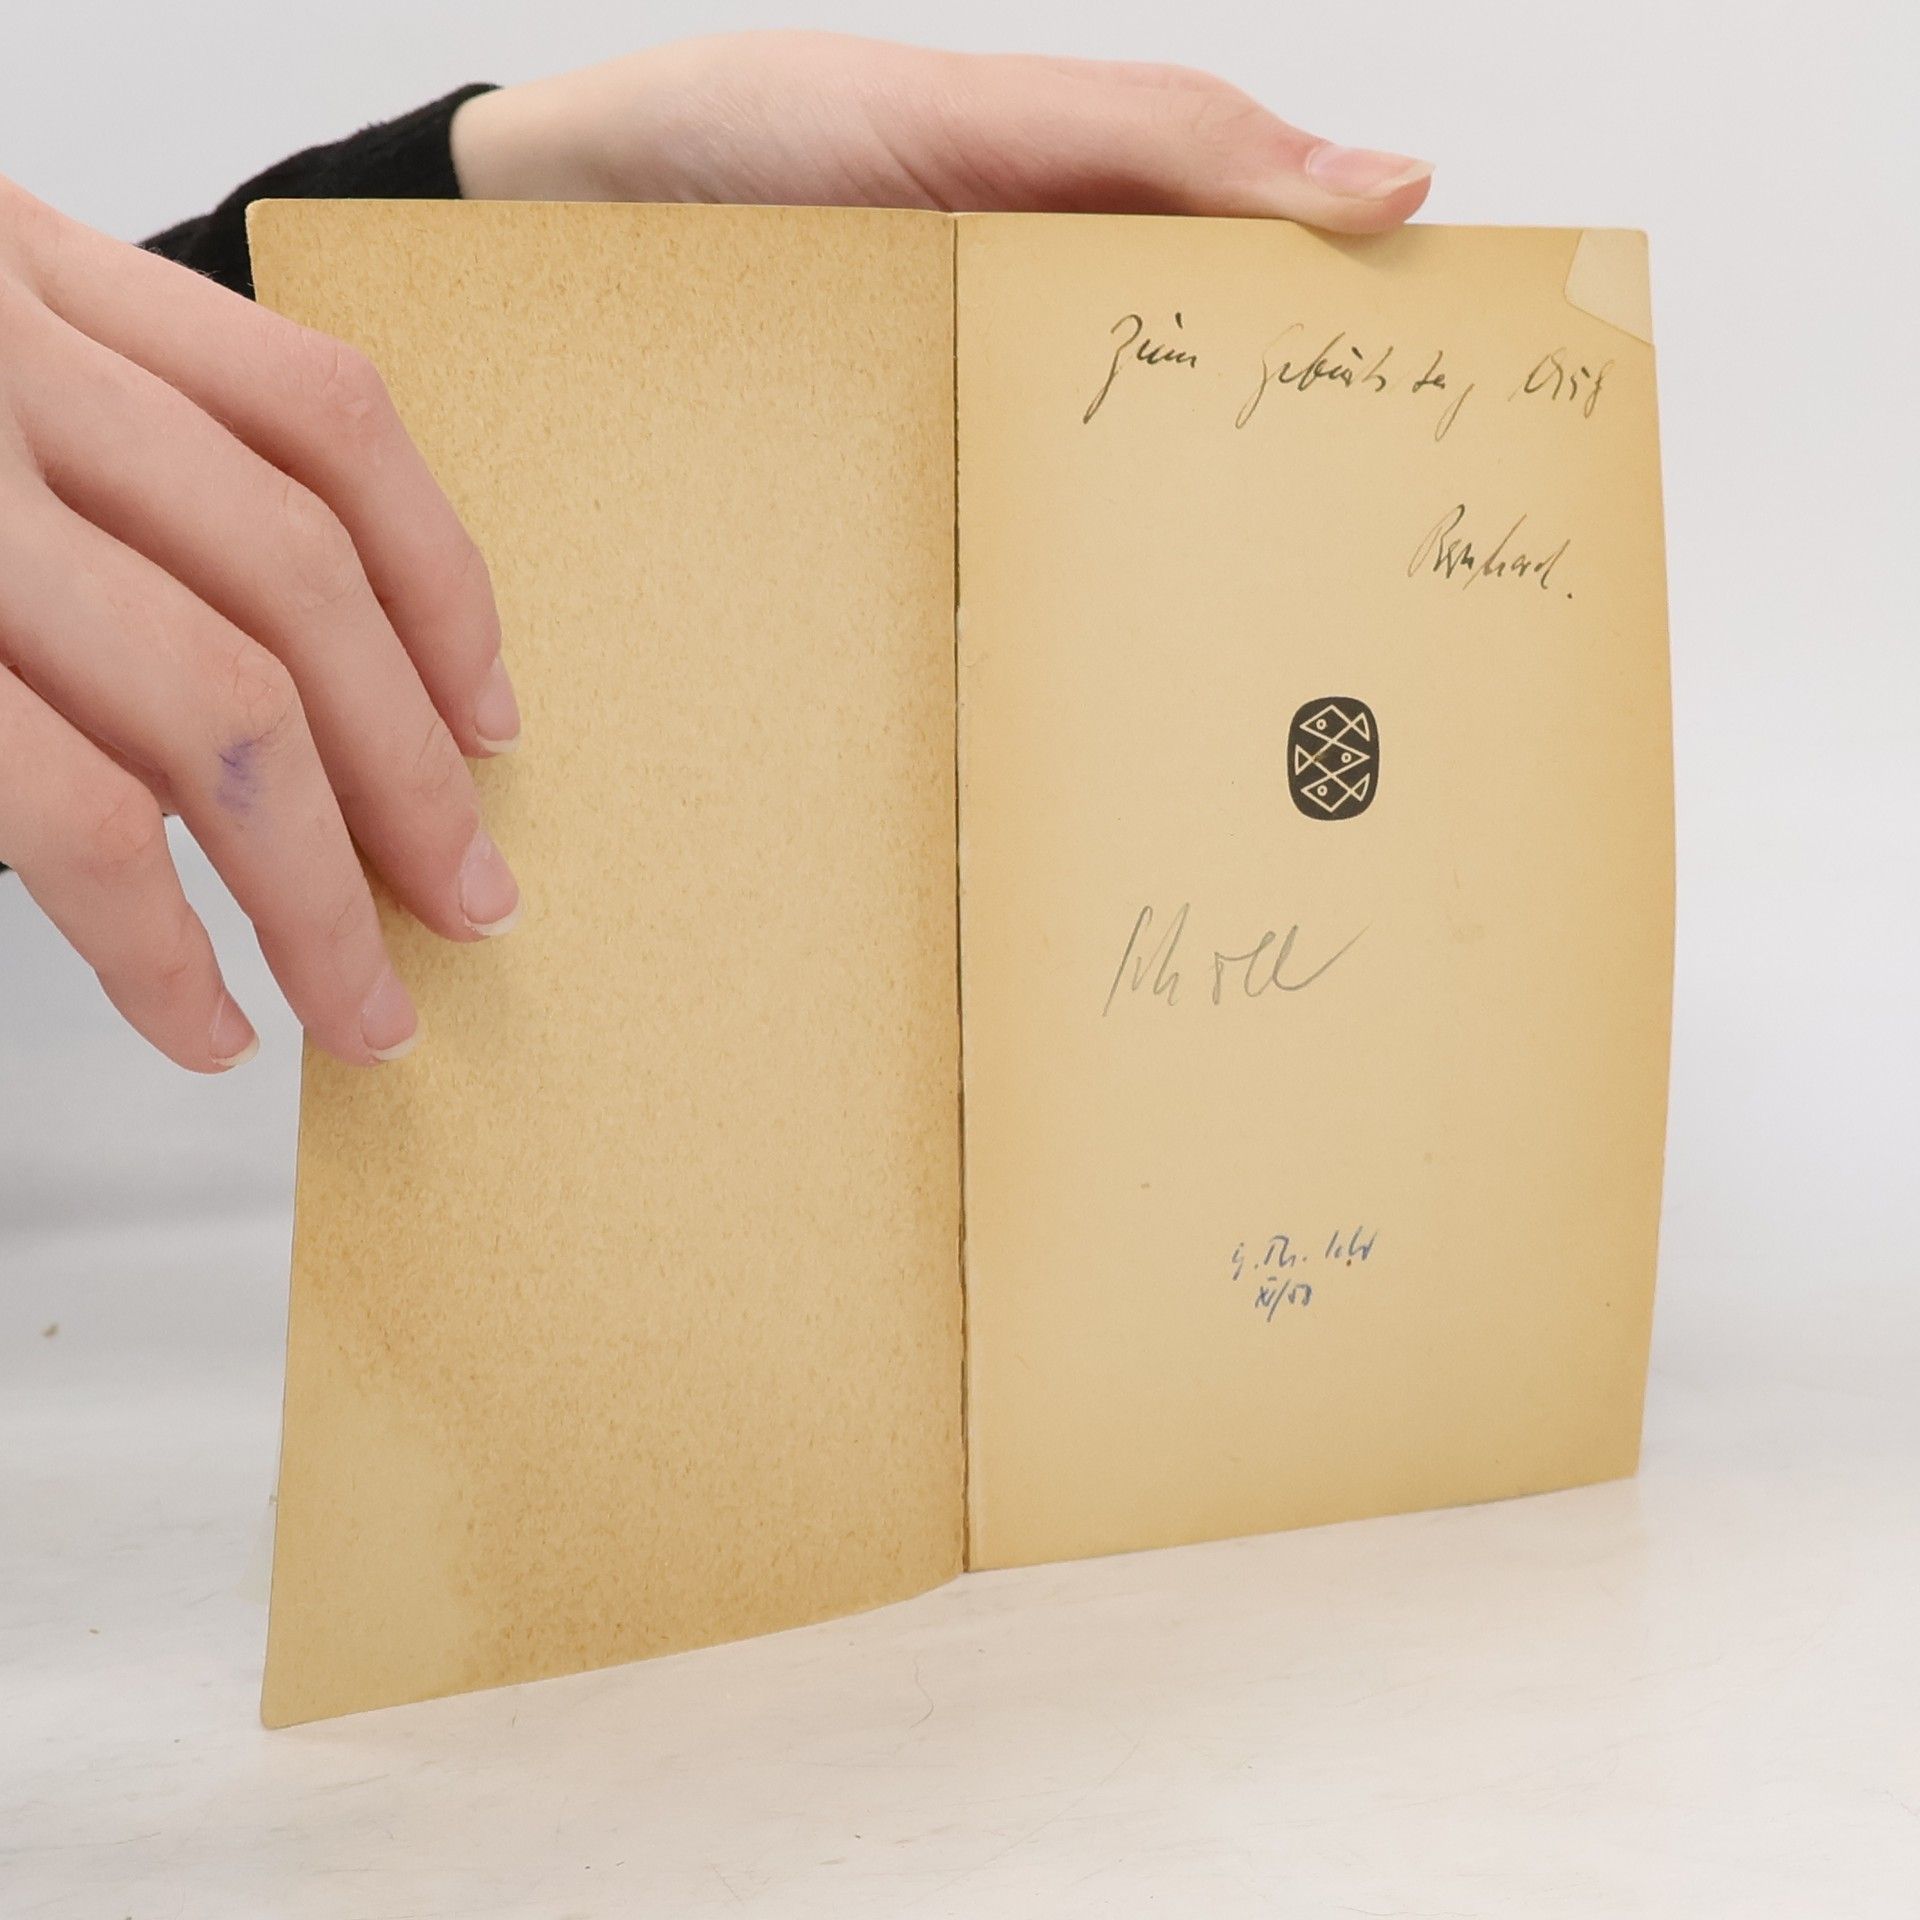 Zum Geburtstag 1958
Bernhard.
Scholl
XI/58